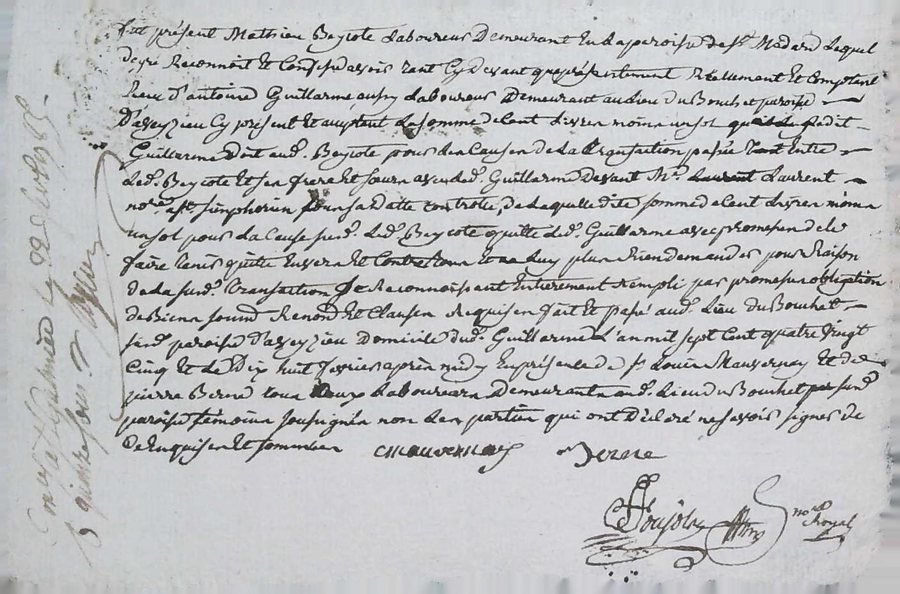 fut présent Mathieu Beyiote Laboureur Demeurant En La paroise de St. Medard Lequel
de gré Reconnoit Et Confesse avoir tant Cy Devant que présentement Réellement Et Comptant
Receu d'antoine Guillarme aussy Laboureur Demeurant au Lieu du Bouchet paroise
D'aveyzieu Cy présent Et aceptant La somme de Cent Livres moins un sol que Ledit
Guillarme Doit aud. Beyiote pour Les Causes de La transaction passée Entre
Led. Beyiote Et ses frere Et soeurs avec led. Guillarme Devant Me. Laurent
nore. a St. simphorien sous sa datte controllé, de Laquelle dite somme de Cent Livres moins
un sol pour La Cause susd. Led. Beyiote quitte led. Guillarme avec promesse de le
faire tenir quitte Envers Et Contre tous Et ne Luy plus Rien demander pour Raison
de La susd. transaction Se Reconnoissant Entierement Rempli par promesse obligation
de Biens soumd Renond Et Clauses Requises fait Et passé aud. Lieu du Bouchet
susd. paroise d'aveyzieu Domicile dud. Guillarme L'an mil sept Cent quatre vingt
Cinq Et Le Dix huit fevrier après midy En présence de sr. Louis Mauvernay Et de
pierre Berne tous Deux Laboureurs Demeurants aud. Lieu du Bouchet susd.
paroise témoins soussignés non Les parties qui ont Déclaré ne savoir signer de
ce Enquises Et sommées
Cmauvernay Berne
nore Royal